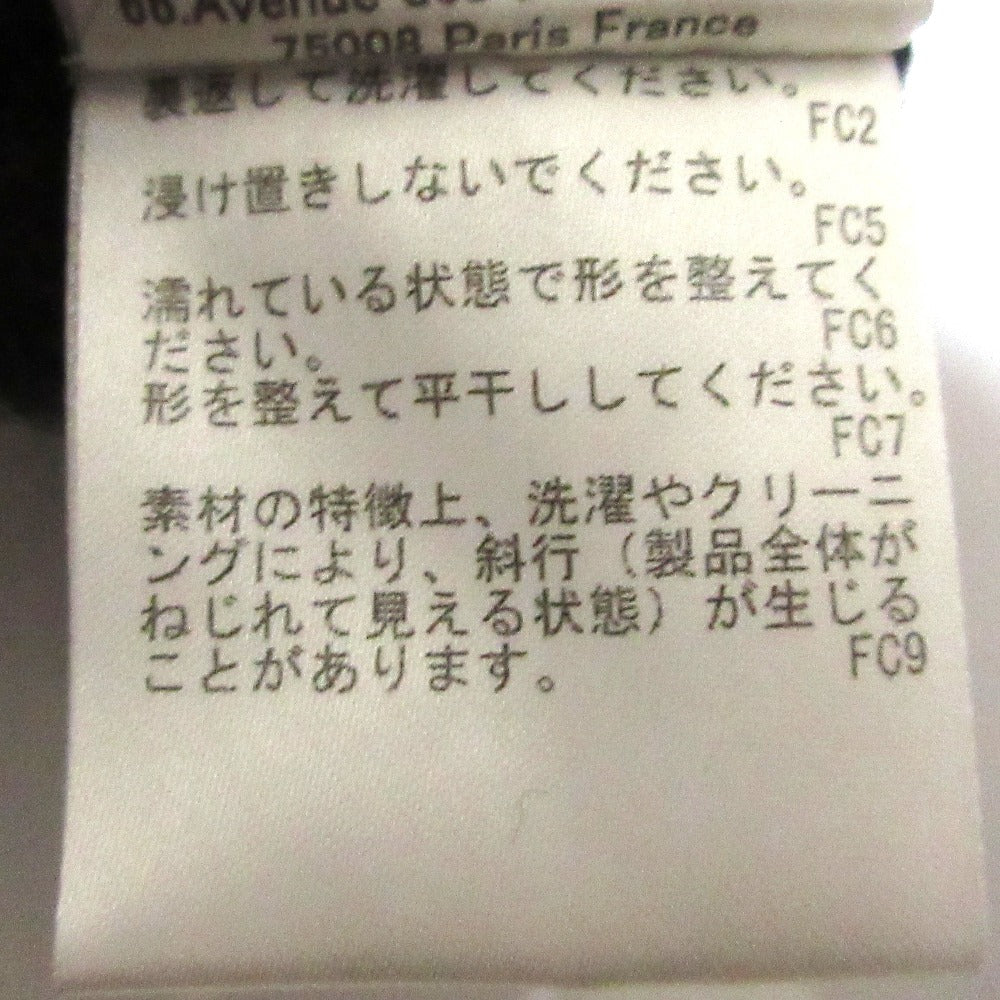 66.Avenue
75008 Paris France
裏返して洗濯してください。
FC2
浸け置きしないでください。
FC5
濡れている状態で形を整えてく
ださい。
FC6
形を整えて平干ししてください。
FC7
素材の特徴上、洗濯やクリーニ
ングにより、斜行（製品全体が
ねじれて見える状態）が生じる
ことがあります。
FC9